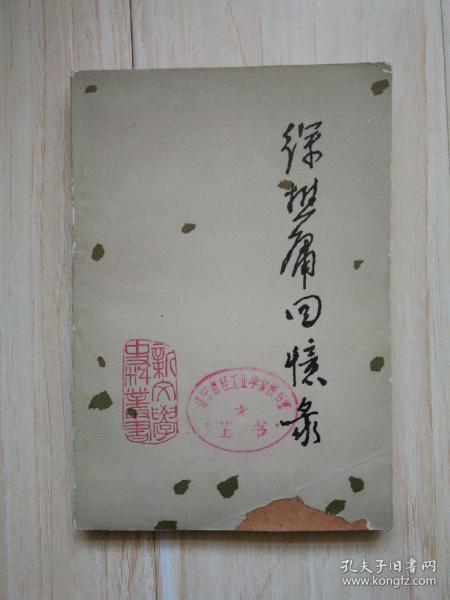 徐懋庸回憶录
新文學
史料叢書
辽宁省轻工业学校图书室
书
孔夫子旧书网
www.kongfz.com